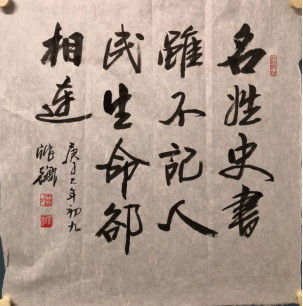 名姓史書
雖不記人
民生命郤
相連
庚子年初九